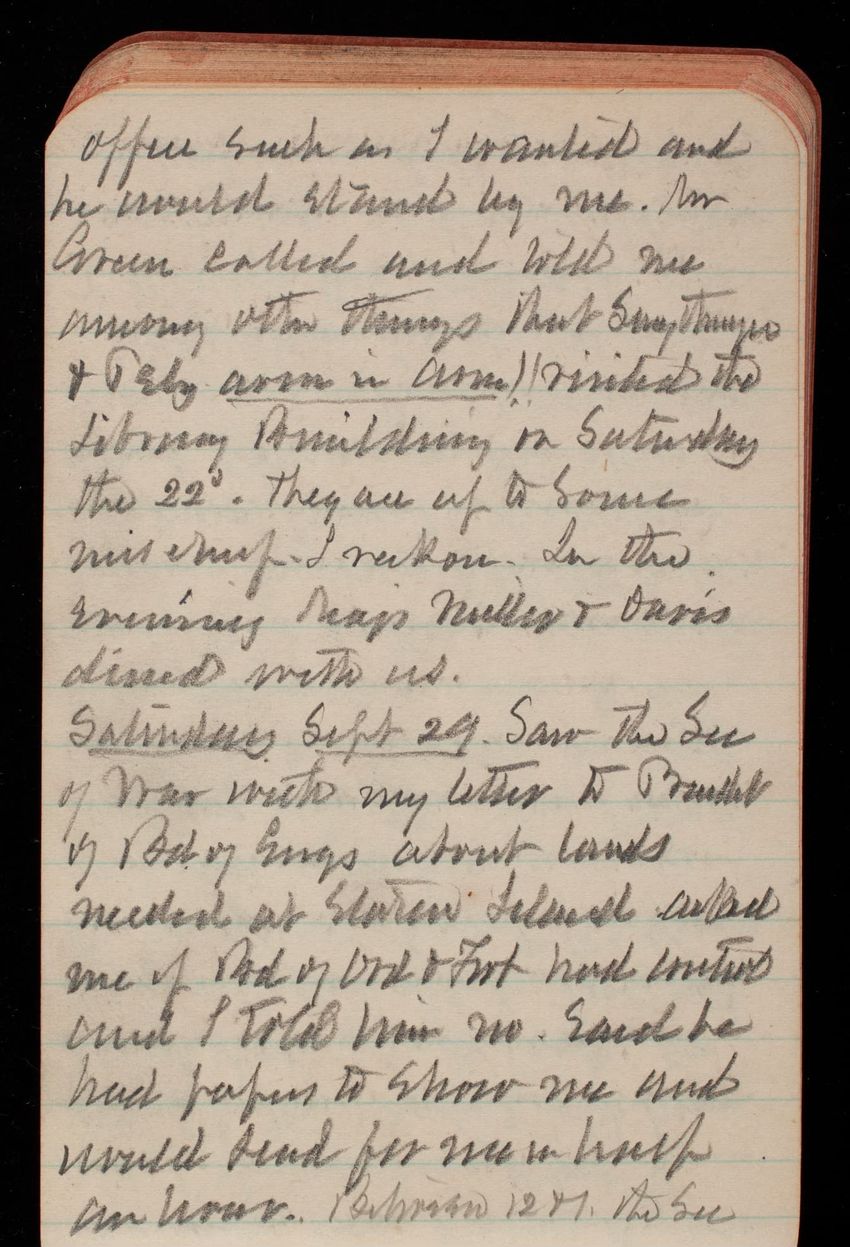 office such as I wanted and
he would stand by me. Mr
Green called and told me
among othr things that Smithmeyer
& Pelz arm in arm!! visited the
Library Building on Saturday
the 22d. They are up to some
mischief I reckon. In the
evening Majs Miller & Davis
dined with us.
Saturday Sept 29. Saw the Sec
of War with my letter to
of Bd. of Engs about lands
needed at Staten Island asked
me if Bd of Ord & Fort had control
and I told him no. Said he
had papers to show me and
would send for me in half
an hour. Between 12 & 1. the Sec